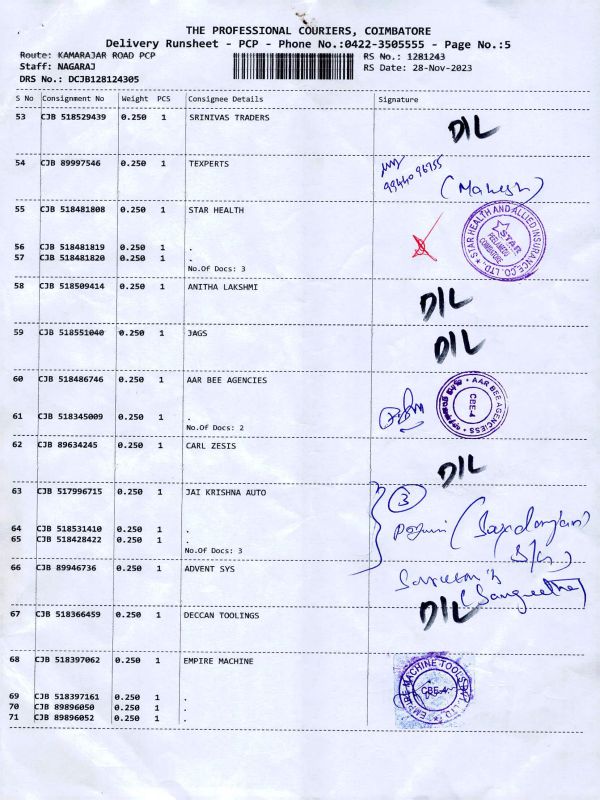 THE PROFESSIONAL COURIERS, COIMBATORE
Delivery Runsheet - PCP - Phone No.:0422-3505555 - Page No.:5
Route: KAMARAJAR ROAD PCP RS No.: 1281243
Staff: NAGARAJ RS Date: 28-Nov-2023
DRS No.: DCJB128124305
S No Consignment No Weight PCS Consignee Details Signature
53 CJB 518529439 0.250 1 SRINIVAS TRADERS D/L
54 CJB 89997546 0.250 1 TEXPERTS 99440 96755
(Mahesh)
55 CJB 518481808 0.250 1 STAR HEALTH
STAR HEALTH AND ALLIED INSURANCE CO. LTD.
STAR
COIMBATORE
56 CJB 518481819 0.250 1 .
57 CJB 518481820 0.250 1 .
No.Of Docs: 3
58 CJB 518509414 0.250 1 ANITHA LAKSHMI D/L
59 CJB 518551040 0.250 1 JAGS D/L
60 CJB 518486746 0.250 1 AAR BEE AGENCIES
AAR BEE AGENCIESS
CBE-4
61 CJB 518345009 0.250 1 .
No.Of Docs: 2
62 CJB 89634245 0.250 1 CARL ZESIS D/L
63 CJB 517996715 0.250 1 JAI KRISHNA AUTO 3
64 CJB 518531410 0.250 1 .
65 CJB 518428422 0.250 1 .
No.Of Docs: 3
66 CJB 89946736 0.250 1 ADVENT SYS
(Sangeetha)
67 CJB 518366459 0.250 1 DECCAN TOOLINGS D/L
68 CJB 518397062 0.250 1 EMPIRE MACHINE
EMPIRE MACHINE TOOLS
CBE-4
69 CJB 518397161 0.250 1 .
70 CJB 89896050 0.250 1 .
71 CJB 89896052 0.250 1 .